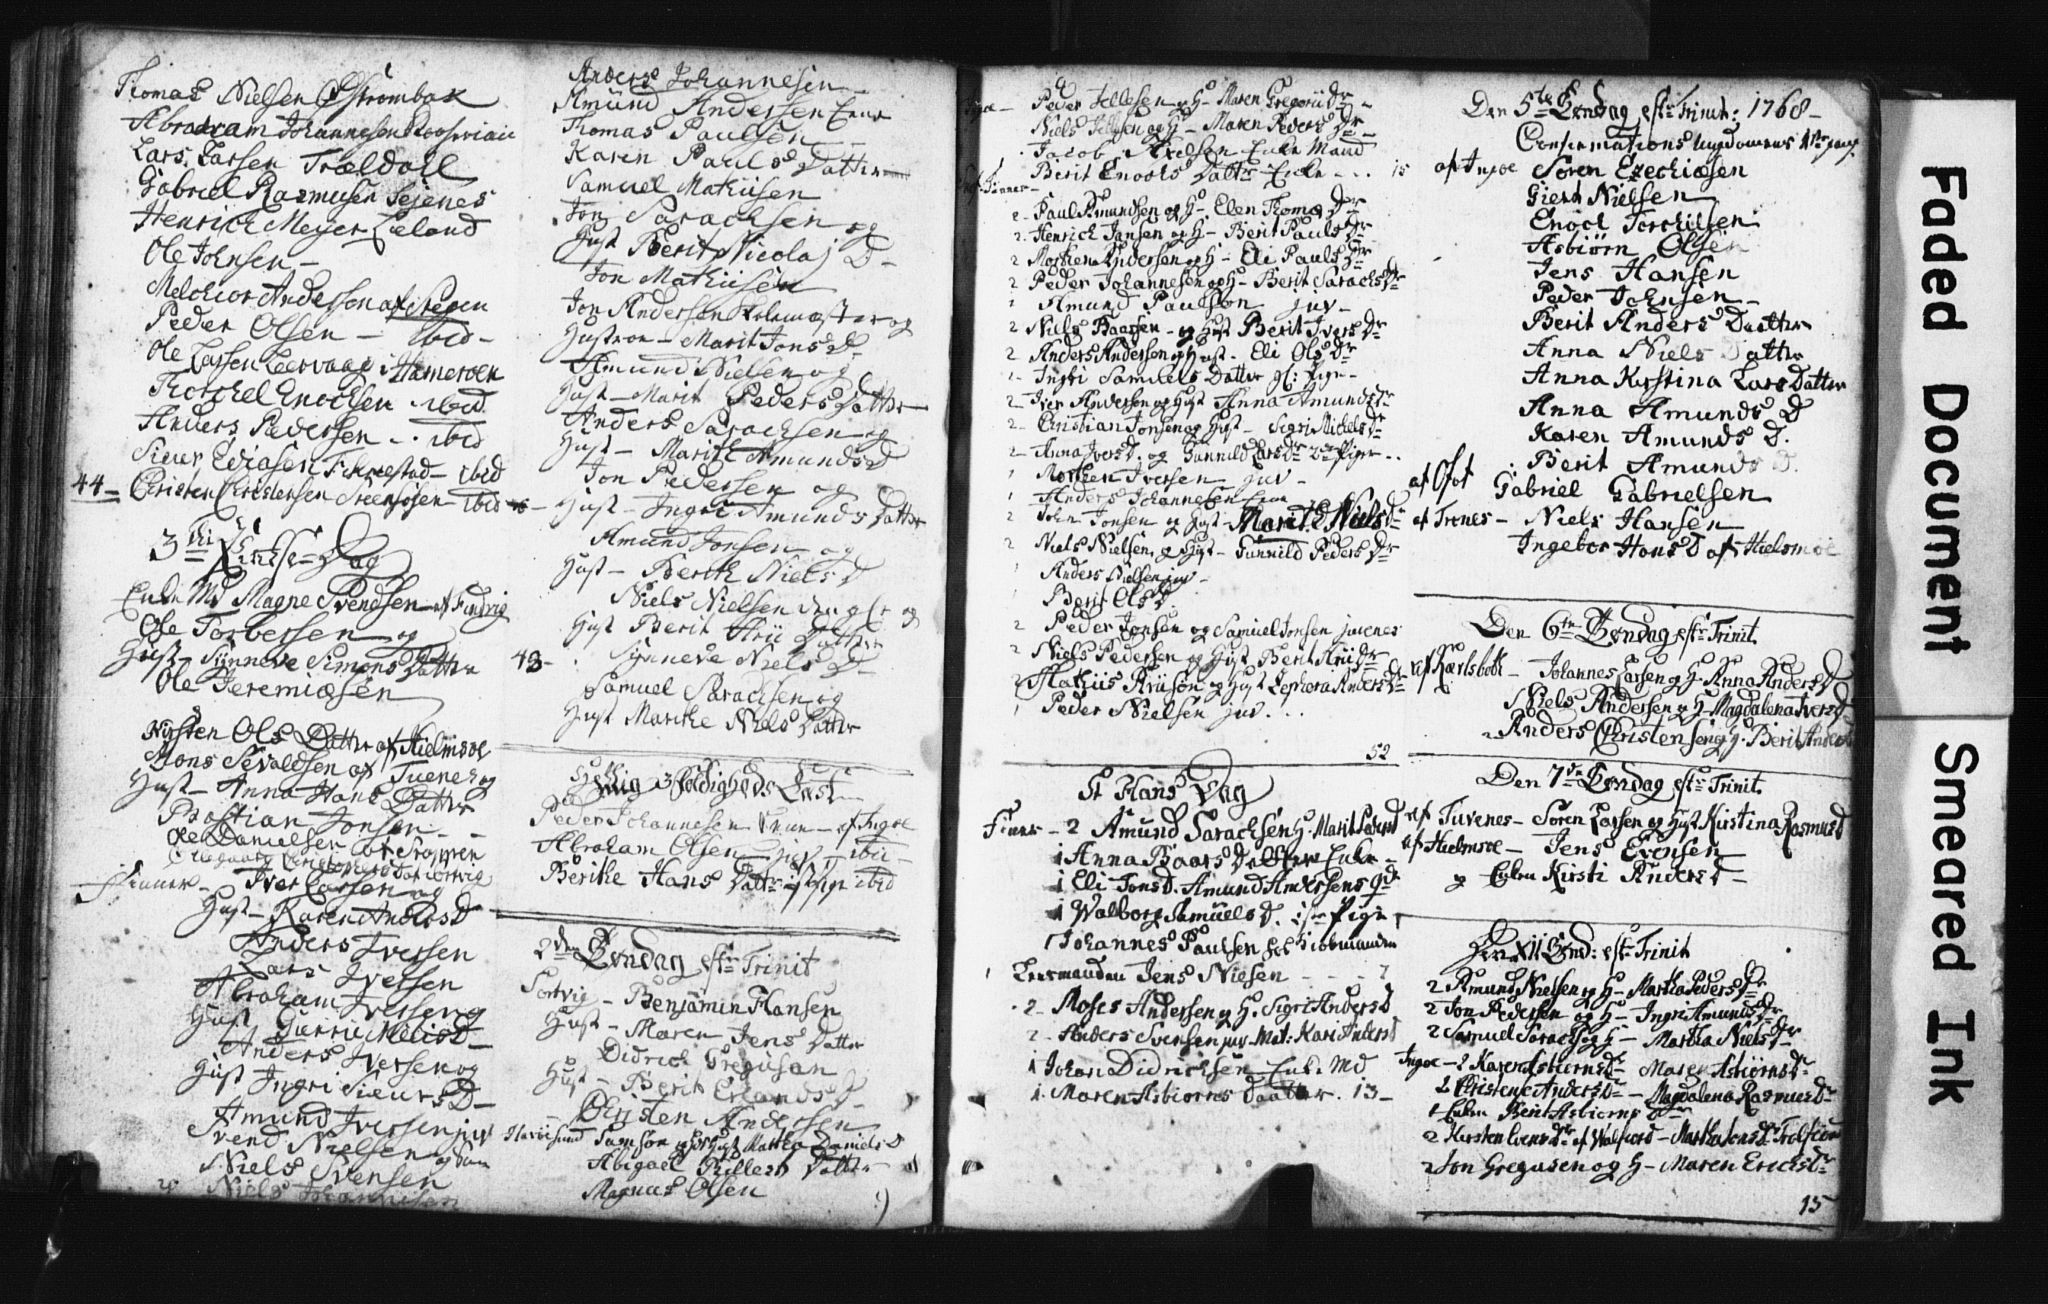 Thomas Nielsen Østrombak
Abraham Johannesen
Lars Larsen Trældall
Gabriel Rasmusen Sejenes
Henrich Meyer Løeland
Ole Johnsen –
Melchior Andersen af Stegen
Peder Olsen – ibid –
Ole Larsen Leervaag i Hamerøen
Thorchel Enochsen ibid
Anders Pedersen – . ibid
Siver Ediasen ibid
44 – Christen Christensen ibid
3die Pintse-Dag
Enke Md Magne Svendsen af Findvig
Ole Torbersen og
Hust – Synneve Simons Datter
Ole Jeremiæsen
Kirsten Ols Datter af Hielmsøe
Mons Sevaldsen af Tuenes og
Hust – Anna Hans Datter
Bastian Jonsen –
Ole Danielsen
Finner – Iver Larsen og
Hust – Karen Anders D
Anders Iversen
Lars Iversen
Abraham Iversen og
Hust Gurru Nielis D –
Anders Iversen og
Hust Ingri Siurs D –
Amund Iversen juv
Svend Nielsen og Søn
Niels Svensen
Niels Johannisen
Anders Johannesen
Amund Andersen Enke
Thomas Paulsen –
Karen Pauls Datter
Samuel Mathisen
Jon Sarachsen og
Hust Berit Nicolaj D –
Jon Mathisen
Jon Andersen Skolemæster og
Hustroe – Marit Jons D
Amund Nielsen og
Hust – Marit Peders Datter
Anders Sarachsen og
Hust – Marith Amunds D
Jon Pedersen og
Hust – Ingri Amunds Datter
Amund Jonsen og
Hust – Berith Niels D
Niels Nielsen den gl: og
Hust Berit Arii Datter
48 – Synneve Niels D –
Samuel Sarachsen og
Hust Marthe Niels Datter
Hellig 3foldigheds Fest
Peder Johannesen – af Ingøe
Abraham Olsen – juv – ibid –
Berithe Hans Datter – ibid
2den Søndag eftr Trinit
Sortvig – Benjamin Hansen
Hust – Maren Jens Datter
Didrich Gregusan
Hust – Berit Erlands D
Christen Andersen
Havøesund Samson og Hust Martha Daniels D
Abigael Pettess Datter
Magnus Olsen
Peder Jellesen og H – Maren Gregorii Dr –
Niels Jellesen og H – Maren Peders Dr –
Jacob Axelsen Enke Mand
Berit Enochs Datter – Enke – . . 15
Finner –
2 – Paul Amundsen og H – Elen Thomæ Dr
2 – Henrich Jansen og H – Berit Pauls Dr
2 Morten Andersen og H – Eli Pauls Dr
2 Peder Johannesen og H – Berit Sarachs Dr
1 Amund Paulson juv –
2 Niels Baarsen – og Hust Berit Ivers Dr
2 Anders Andersen og Hust – Eli Ols Dr
1 – Ingri Samuels Datter gl: Pige –
2 – Iver Andersen og Hust Anna Amunds Dr
2 – Christian Jonsen og Hust – Sigri Nichels Dr
2 – Anna Ivers D. og Gunnild Lars Dr 2de Piger . .
1 Morten Iversen juv –
1 Anders Johannesen Enke
2 John Jonsen og Hust – Marith Niels Dr
2 Niels Nielsen og Hust – Gunnild Peders Dr
1 Anders Nielsen juv –
1 Berit Ols D.
2 Peder Jonsen og Samuel Jonsen juvenes
2 Niels Pedersen og Hust Berit Arii Dr
2 Mathiis Ariison og Hust Zephora Anders Dr
1 Peder Nielsen juv. . .
52
St Hans Dag
Finner – 2 Amund Sarachsen H. Marit Peders D
1 Anna Baars Datter Enke –
1 Eli Jons D. Amund Andersens
1 Walborg Samuels D. Pige
1 Johannes Paulsen
1 Leermanden Jens Nielsen – – – 7
2 – Moses Andersen og H. Sigri Anders D
2 – Anders Svensen juv Mat: Kari Anders D
1 Johan Didrichsen – Enke Md
1. Maren Asbiørns Daatter. 13 –
Den 5te Søndag eftr Trinit: 1768 –
Confirmations Ungdommens
af Ingøe Søren Ezechiæsen
Giert Nielsen
Enoch Torchilsen
Asbiørn Olsen
Jens Hansen
Peder Johnsen –
Berit Anders Daatter
Anna Niels Datter
Anna Kirstina Lars Datter
Anna Amunds D
Karen Amunds D.
Berit Amunds D.
af Ofot Gabriel Gabrielsen
af Trenes – Niels Hansen
Ingebor Hans D af Hielmsøe
Den 6te Søndag eftr Trinit.
af Karlsbotn – Johannes Larsen og H. Anna Anders D
Niels Andersen og H – Magdalena Ivers D
Anders Christensen og H. Berit Anders
Den 7de Søndag eftr Trinit.
af Tuvenes – Søren Larsen og Hust Kirstina Rasmus D
af Hielmsøe – Jens Evensen
og Enken Kirsti Anders D –
Den XII Sønd: eftr Trinit
2 Amund Nielsen og H – Martha Peders Dr
2 Jon Pedersen og H – Ingri Amunds Dr
2 Samuel Sarachs og H – Martha Niels Dr –
Ingøe – 2 Karen Asbiørns Dr Maren Asbiørns Dr
2 Christene Anders Dr – Magdalena Rasmus Dr
1 Enken Berit Asbiørns
2 Kirsten Evens Dr af Walfiord – Martha Jens Dr Trolfiord
2 Jon Gregusen og H – Maren Erichs Dr
15
Faded Document
Smeared Ink